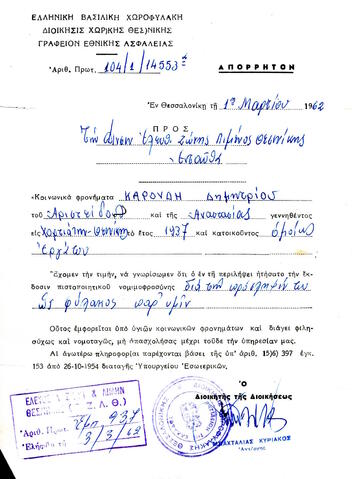 ΕΛΛΗΝΙΚΗ ΒΑΣΙΛΙΚΗ ΧΩΡΟΦΥΛΑΚΗ
ΔΙΟΙΚΗΣΙΣ ΧΩΡ)ΚΗΣ ΘΕΣ)ΝΙΚΗΣ
ΓΡΑΦΕΙΟΝ ΕΘΝΙΚΗΣ ΑΣΦΑΛΕΙΑΣ
Ἀριθ. Πρωτ. 104/1/14553
ΑΠΟΡΡΗΤΟΝ
Ἐν Θεσσαλονίκῃ τῇ 1η Μαρτίου 1962
ΠΡΟΣ
Τὴν Δ)νσιν Ἐλευθ. Ζώνης Λιμένος Θεσ)νίκης
Ἐνταῦθα
«Κοινωνικὰ φρονήματα ΚΑΡΟΥΔΗ Δημητρίου
τοῦ Ἀριστείδου καὶ τῆς Ἀναστασίας γεννηθέντος
εἰς Χορτιάτη-Θεσ)νίκης τὸ ἔτος 1937 καὶ κατοικοῦντος ὁμοίως
Ἐργάτου
Ἔχομεν τὴν τιμήν, νὰ γνωρίσωμεν ὅτι ὁ ἐν τῇ περιλήψει ᾐτήσατο τὴν ἔκ-
δοσιν πιστοποιητικοῦ νομιμοφροσύνης διὰ τὴν πρόσληψίν του
ὡς φύλακος παρ' ὑμῖν
Οὗτος ἐμφορεῖται ὑπὸ ὑγιῶν κοινωνικῶν φρονημάτων καὶ διάγει φιλη-
σύχως καὶ νομοταγῶς, μὴ ἀπασχολήσας μέχρι τοῦδε τὴν ὑπηρεσίαν μας.
Αἱ ἀνωτέρω πληροφορίαι παρέχονται βάσει τῆς ὑπ' ἀριθ. 15(6) 397 ἐγκ.
153 ἀπὸ 26-10-1954 διαταγῆς Ὑπουργείου Ἐσωτερικῶν.
Ὁ
Διοικητὴς τῆς Διοικήσεως
ΜΠΑΧΤΑΛΙΑΣ ΚΥΡΙΑΚΟΣ
ΘΕΣΣΑΛΟΝΙΚΗΣ
Ἀριθ. Πρωτ. 937
Ἐλήφθη τῇ 3/3/62